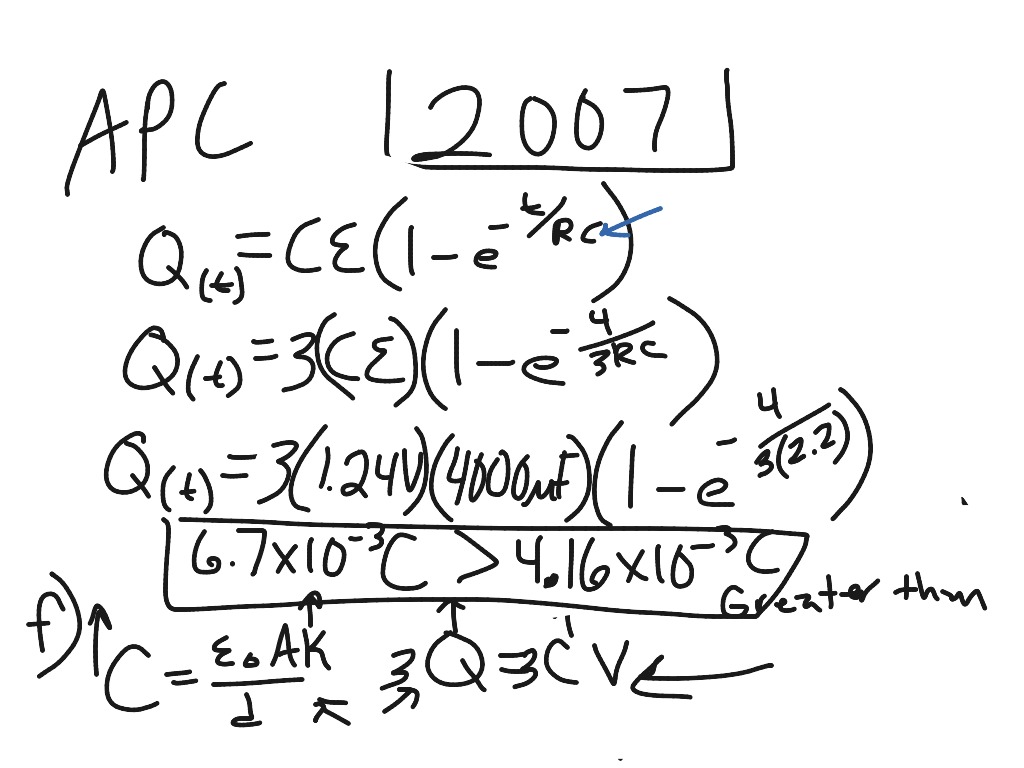 APC 2007
Q(t) = Cε(1 - e^-t/RC)
Q(t) = 3(Cε)(1 - e^-4/3RC)
Q(t) = 3(1.24V)(4000μF)(1 - e^-4/3(2.2))
6.7x10^-3 C > 4.16x10^-3 C
Greater than
f) ↑C = ε₀AK/d 3Q = 3CV